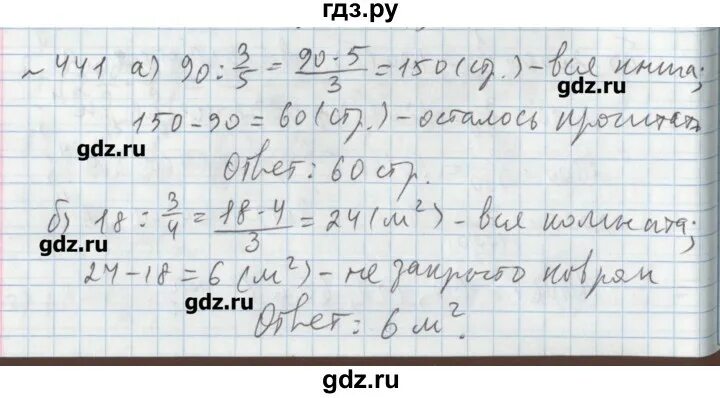 гдз.ру
№441 а) 90 : 3/5 = 90·5/3 = 150 (стр.) – вся книга;
gdz.ru
150 – 90 = 60 (стр.) – осталось прочитать
gdz.ru
gdz.ru
Ответ: 60 стр.
б) 18 : 3/4 = 18·4/3 = 24 (м²) – вся комната;
gdz.ru
gdz.ru
24 – 18 = 6 (м²) – не закрыто ковром
gdz.ru
Ответ: 6 м².
gdz.ru